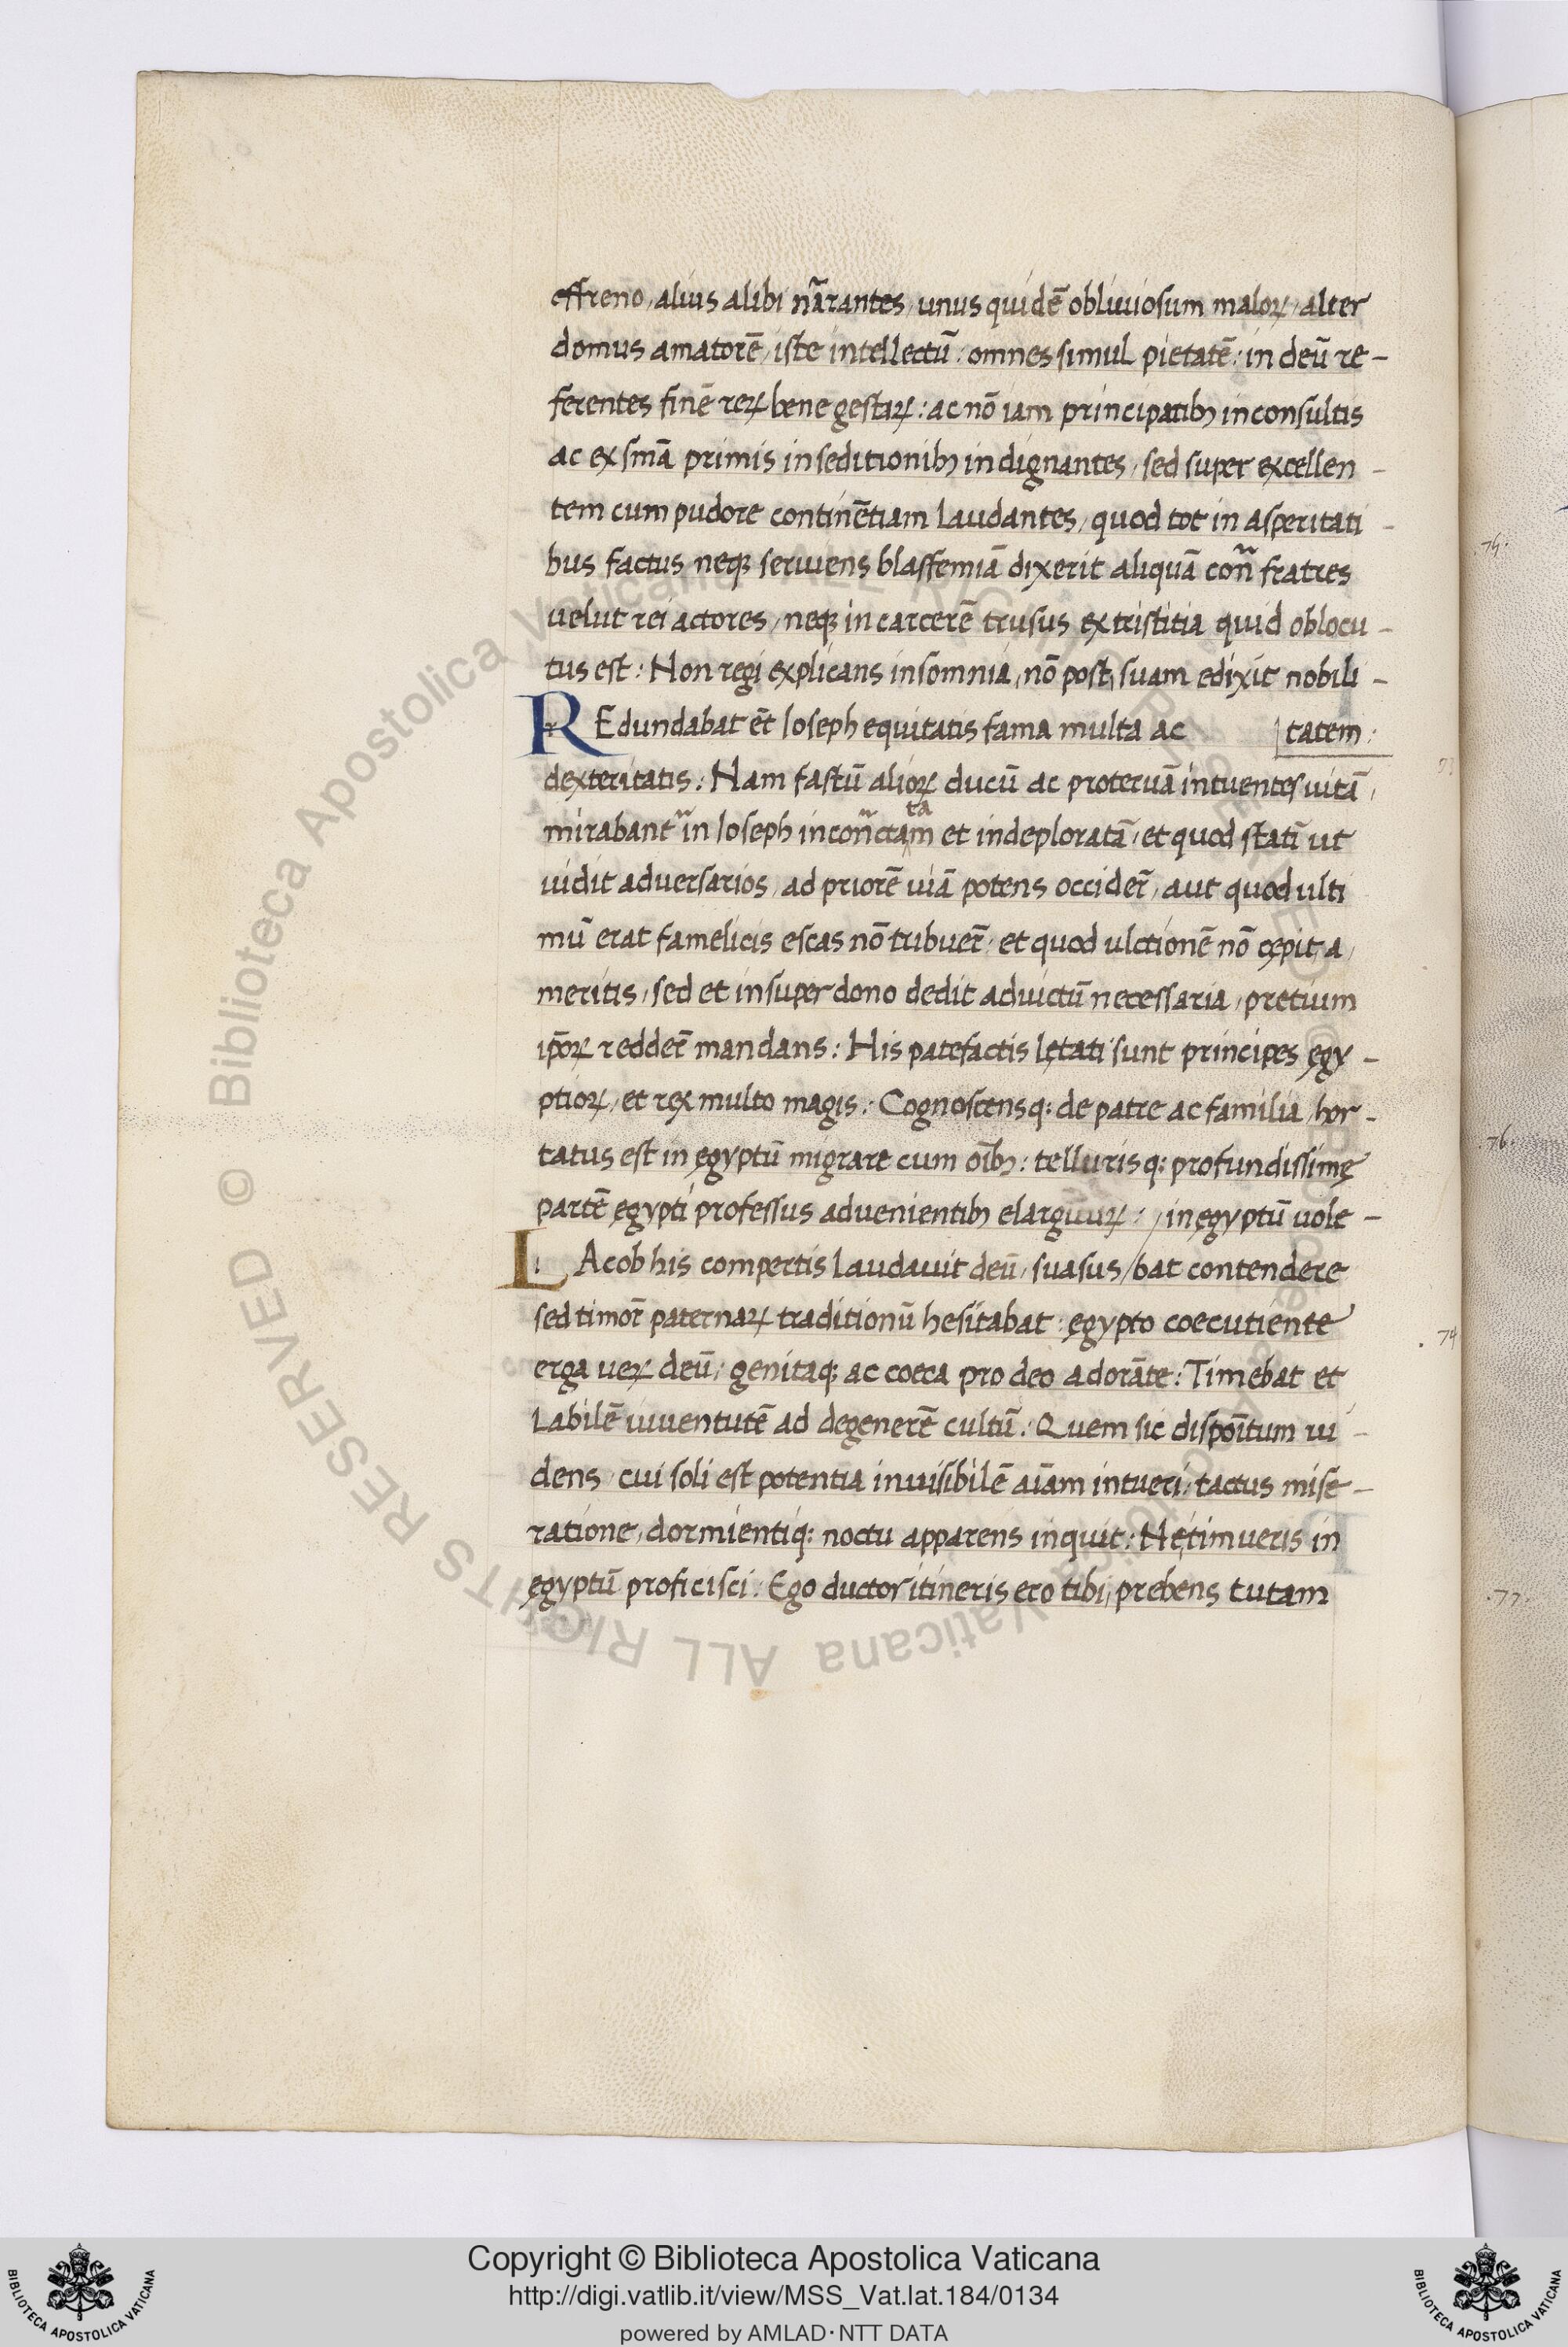 effreno, alius alibi nr̄arantes, unus quidē obliuiosum maloꝝ, alter
domus amatorē, iste intellectū: omnes simul pietatē: in deū re-
ferentes finē reꝝ bene gestaꝝ: ac nō iam principatibꝫ inconsultis
ac ex sm̄a primis in seditionibꝫ indignantes, sed super excellen-
tem cum pudore continētiam laudantes, quod tot in asperitati-
bus factus neqꝫ seruiens blasfemiā dixerit aliquā con̄ fratres
uelut rei actores, neqꝫ in carcerē trusus ex tristitia quid oblocu-
tus est: Non regi explicans insomnia, nō post suam edixit nobili-
REdundabat et̄ Ioseph equitatis fama multa ac tatem:
dexteritatis: Nam fastū alioꝝ ducū ac proteruā intuentes uitā,
mirabant᷑ in Ioseph incon̄ctatam et indeploratā, et quod statī ut
uidit aduersarios, ad priorē uiā potens occider̄, aut quod ulti
mū erat famelicis escas nō tribuer̄: et quod ulctionē nō cępit, a,
meritis, sed et insuper dono dedit aduictū necessaria, pretium
ip̄oꝝ redder̄ mandans: His patefactis lętati sunt principes ęgy-
ptioꝝ, et rex multo magis: Cognoscensq: de patre ac familia, hor-
tatus est in ęgyptū migrare cum oībꝫ: tellurisq: profundissimę
partē ęgypti professus aduenientibꝫ elargituꝝ: / in ęgyptū uole-
IAcob his compertis laudauit deū, suasus / bat contendere
sed timor̄ paternaꝝ traditionū hesitabat: ęgypto coecutiente
erga ueꝝ deū, genitaqꝫ ac coeca pro deo adorāte: Timebat et
labilē iuuentutē ad degenerē cultū: Quem sic dispoītum ui-
dens, cui soli est potentia inuisibilē aīam intueri, tactus mise-
ratione, dormientiq: noctu apparens inquit: Ne timueris in
ęgyptū proficisci: Ego ductor itineris ero tibi, prebens tutam
.75.
.76.
74
.77.
© Biblioteca Apostolica Vaticana ALL RIGHTS RESERVED
Copyright © Biblioteca Apostolica Vaticana
http://digi.vatlib.it/view/MSS_Vat.lat.184/0134
powered by AMLAD·NTT DATA
BIBLIOTECA APOSTOLICA VATICANA
BIBLIOTECA APOSTOLICA VATICANA